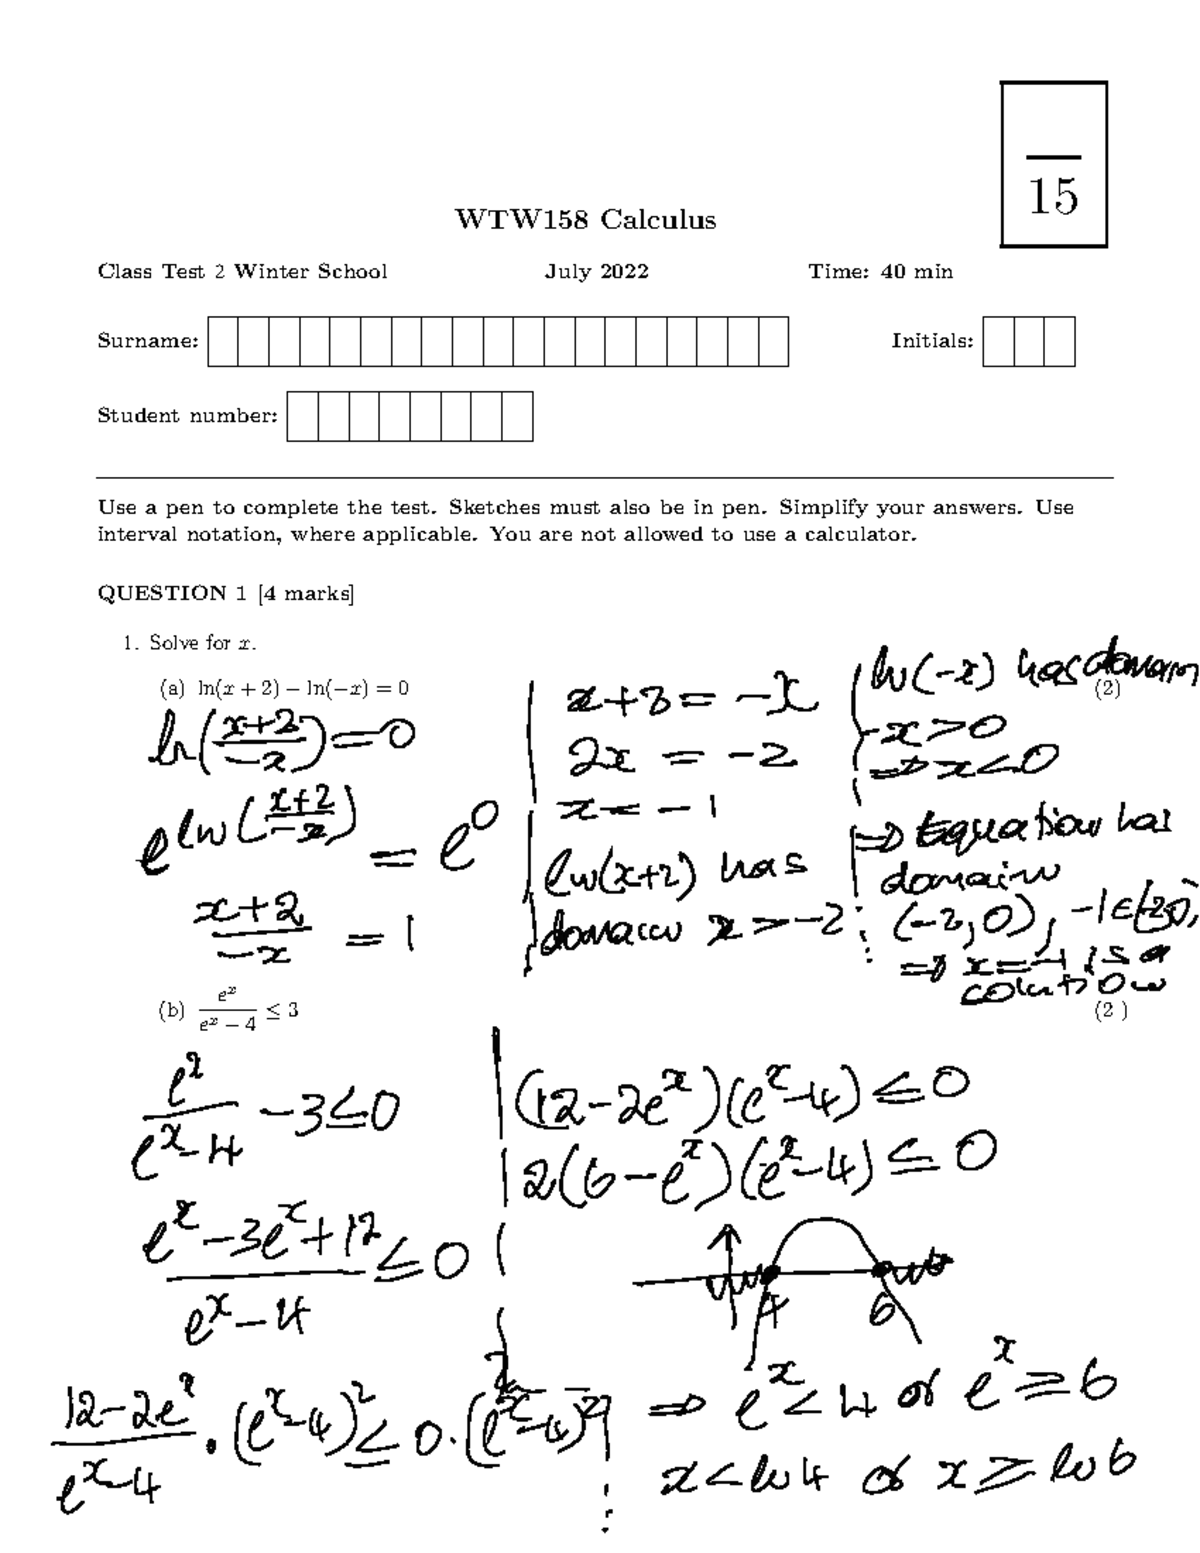 15
WTW158 Calculus
Class Test 2 Winter School July 2022 Time: 40 min
Surname: Initials:
Student number:
Use a pen to complete the test. Sketches must also be in pen. Simplify your answers. Use
interval notation, where applicable. You are not allowed to use a calculator.
QUESTION 1 [4 marks]
1. Solve for x.
(a) ln(x + 2) − ln(−x) = 0 (2)
ln((x+2)/(−x)) = 0
e^ln((x+2)/(−x)) = e^0
(x+2)/(−x) = 1
x+2 = −x
2x = −2
x = −1
ln(x+2) has
domain x > −2
ln(−x) has domain
−x > 0
⇒ x < 0
⇒ Equation has
domain
(−2, 0), −1 ∈ (−2,0),
⇒ x = −1 is a
solution
(b) e^x/(e^x − 4) ≤ 3 (2 )
e^x/(e^x−4) − 3 ≤ 0
(e^x − 3e^x + 12)/(e^x − 4) ≤ 0
(12−2e^x)/(e^x−4) · (e^x−4)^2 ≤ 0 · (e^x−4)^2
(12−2e^x)(e^x−4) ≤ 0
2(6−e^x)(e^x−4) ≤ 0
4 6
⇒ e^x < 4 or e^x ≥ 6
x < ln 4 or x ≥ ln 6